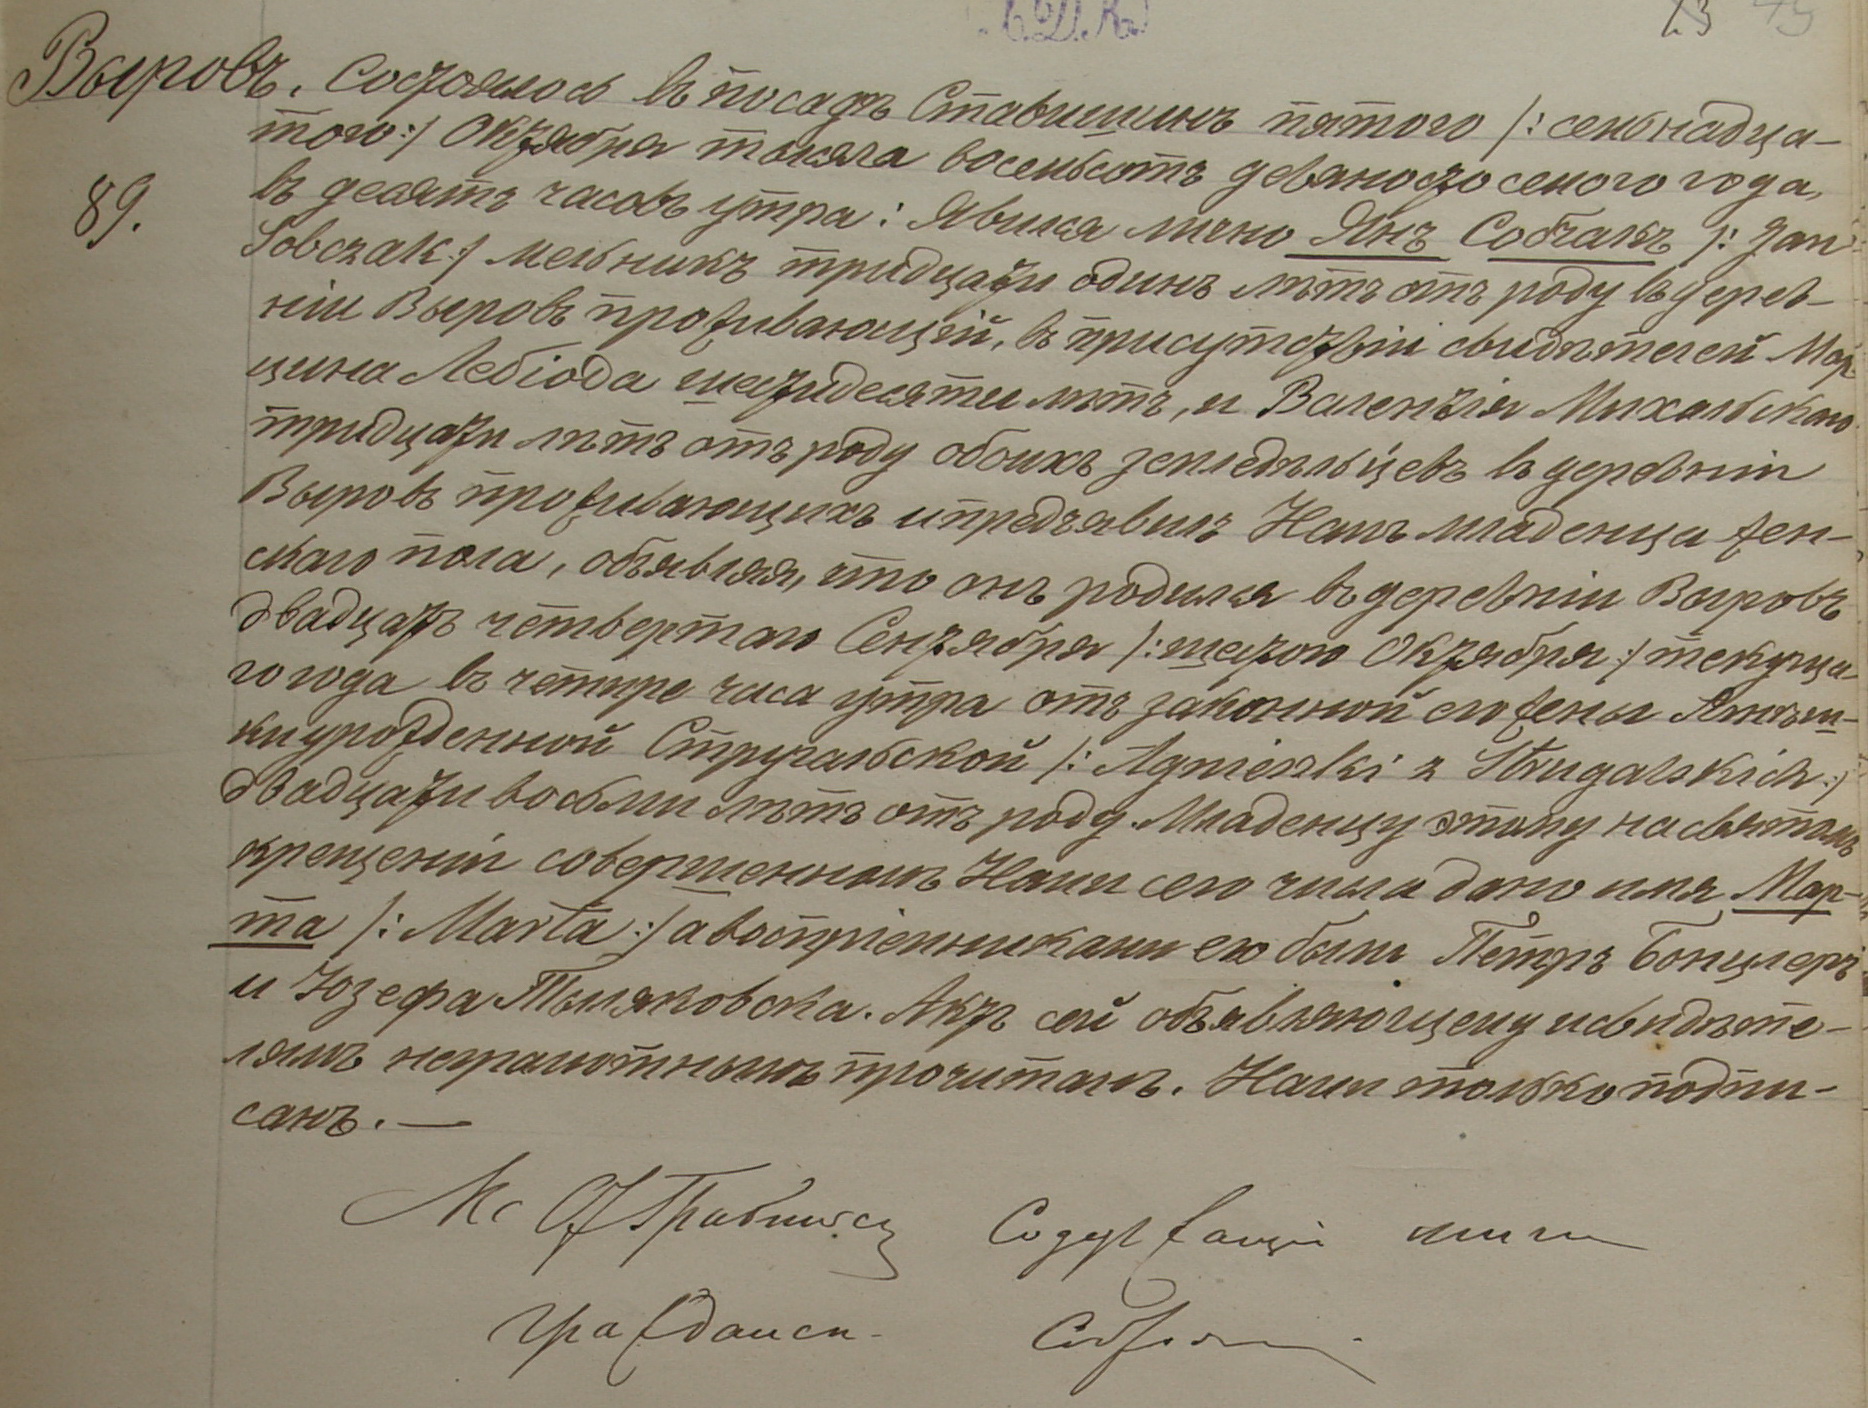 Выровъ. Состоялось въ посадѣ Ставишинъ пятого /: семьнадца-
того :/ Октября тысяча восемьсотъ девяносто семого года,
89.
въ десять часовъ утра: Явился лично Янъ Собчакъ /: Jan
Sobczak :/ мельникъ тридцати одинъ лѣтъ отъ роду въ дерев-
ніи Выровъ проживающій, въ присутствіи свидѣтелей Мар-
цина Лебіода шестидесяти лѣтъ, и Валентія Михальскаго
тридцати лѣтъ отъ роду обоихъ земледѣльцевъ въ деревніи
Выровъ проживающихъ и предъявилъ Намъ младенца жен-
скаго пола, объявляя, что онъ родился въ деревніи Выровъ
двадцать четвертаго Сентября /: шестого Октября :/ текуща-
го года въ четыре часа утра отъ законной его жены Агнѣш-
ки урожденной Стругальской /: Agnieszki z Strugalskich :/
двадцати восьми лѣтъ отъ роду. Младенцу этому на святомъ
крещеніи совершенномъ Нами сего числа дано имя Мар-
та /: Marta :/ а воспріемниками его были Петръ Бонцлеръ
и Юзефа Тыляковска. Актъ сей объявляющему и свидѣте-
лямъ неграмотнымъ прочитанъ. Нами только подпи-
санъ. —
Кс Содержащій
Гражданск. Состоян.